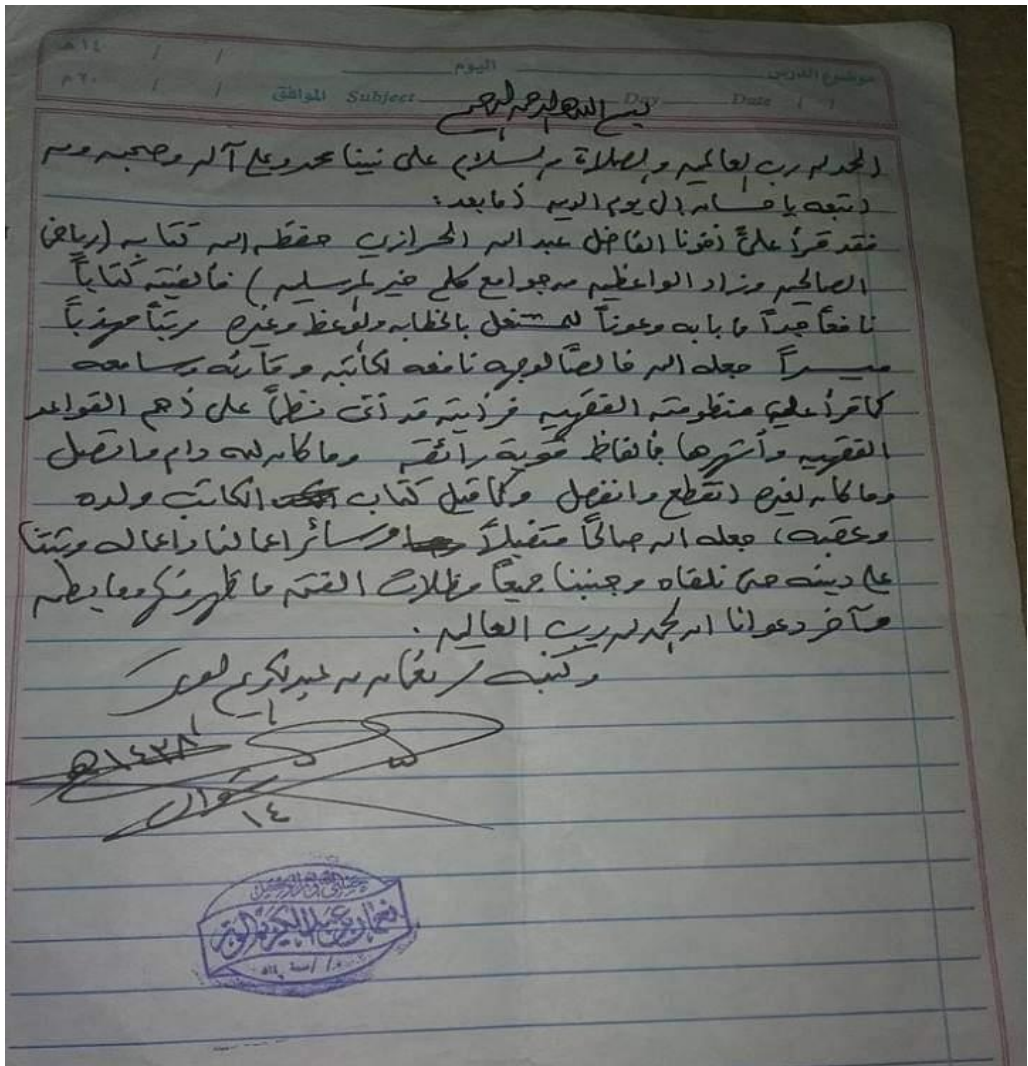 ١٤ هـ / / اليوم موضوع الدرس
٢٠ م / / الموافق Subject Day Date / /
بسم الله الرحمن الرحيم
الحمد لله رب العالمين والصلاة والسلام على نبينا محمد وعلى آله وصحبه ومن
اتبعه بإحسان إلى يوم الدين أما بعد:
فقد قرأ عليَّ أخونا الفاضل عبد الله الحرازي حفظه الله كتابه (رياض
الصالحين وزاد الواعظين من جوامع كلم خير المرسلين) فألفيته كتاباً
نافعاً جيداً في بابه وعوناً للمشتغل بالخطابه والوعظ وغيره مرتباً مهذباً
ميسراً جعله الله خالصاً لوجهه نافعه لكاتبه وقارئه وسامعه
كما قرأ علي منظومته الفقهيه فرأيته قد أتى نظماً على أهم القواعد
الفقهيه وأشهرها بألفاظ قوية رائقة وما كان لله دام واتصل
وما كان لغيره انقطع وانفصل وكما قيل كتاب الكاتب ولده
وعقبه، جعله الله صالحاً متقبلاً وسائر اعمالنا واعماله وثبتنا
على دينه حتى نلقاه وجنبنا جميعاً مظلات الفتن ما ظهر منها وما بطن
وآخر دعوانا ان الحمد لله رب العالمين.
وكتبه / نعمان بن عبدالكريم الوتر
١٤٣٨ هـ
شوال
١٤
نعمان بن عبد الكريم الوتر